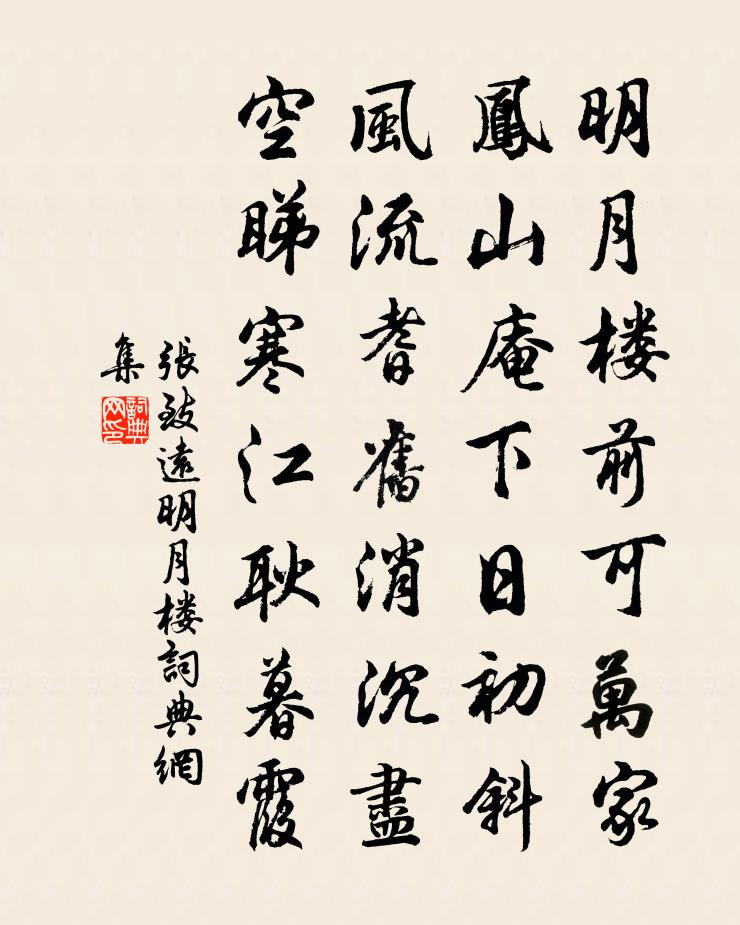 明月楼前可萬家
鳳山庵下日初斜
風流耆舊消沉盡
空睇寒江耿暮霞
張致遠明月楼詞典網
集
詞典
网印